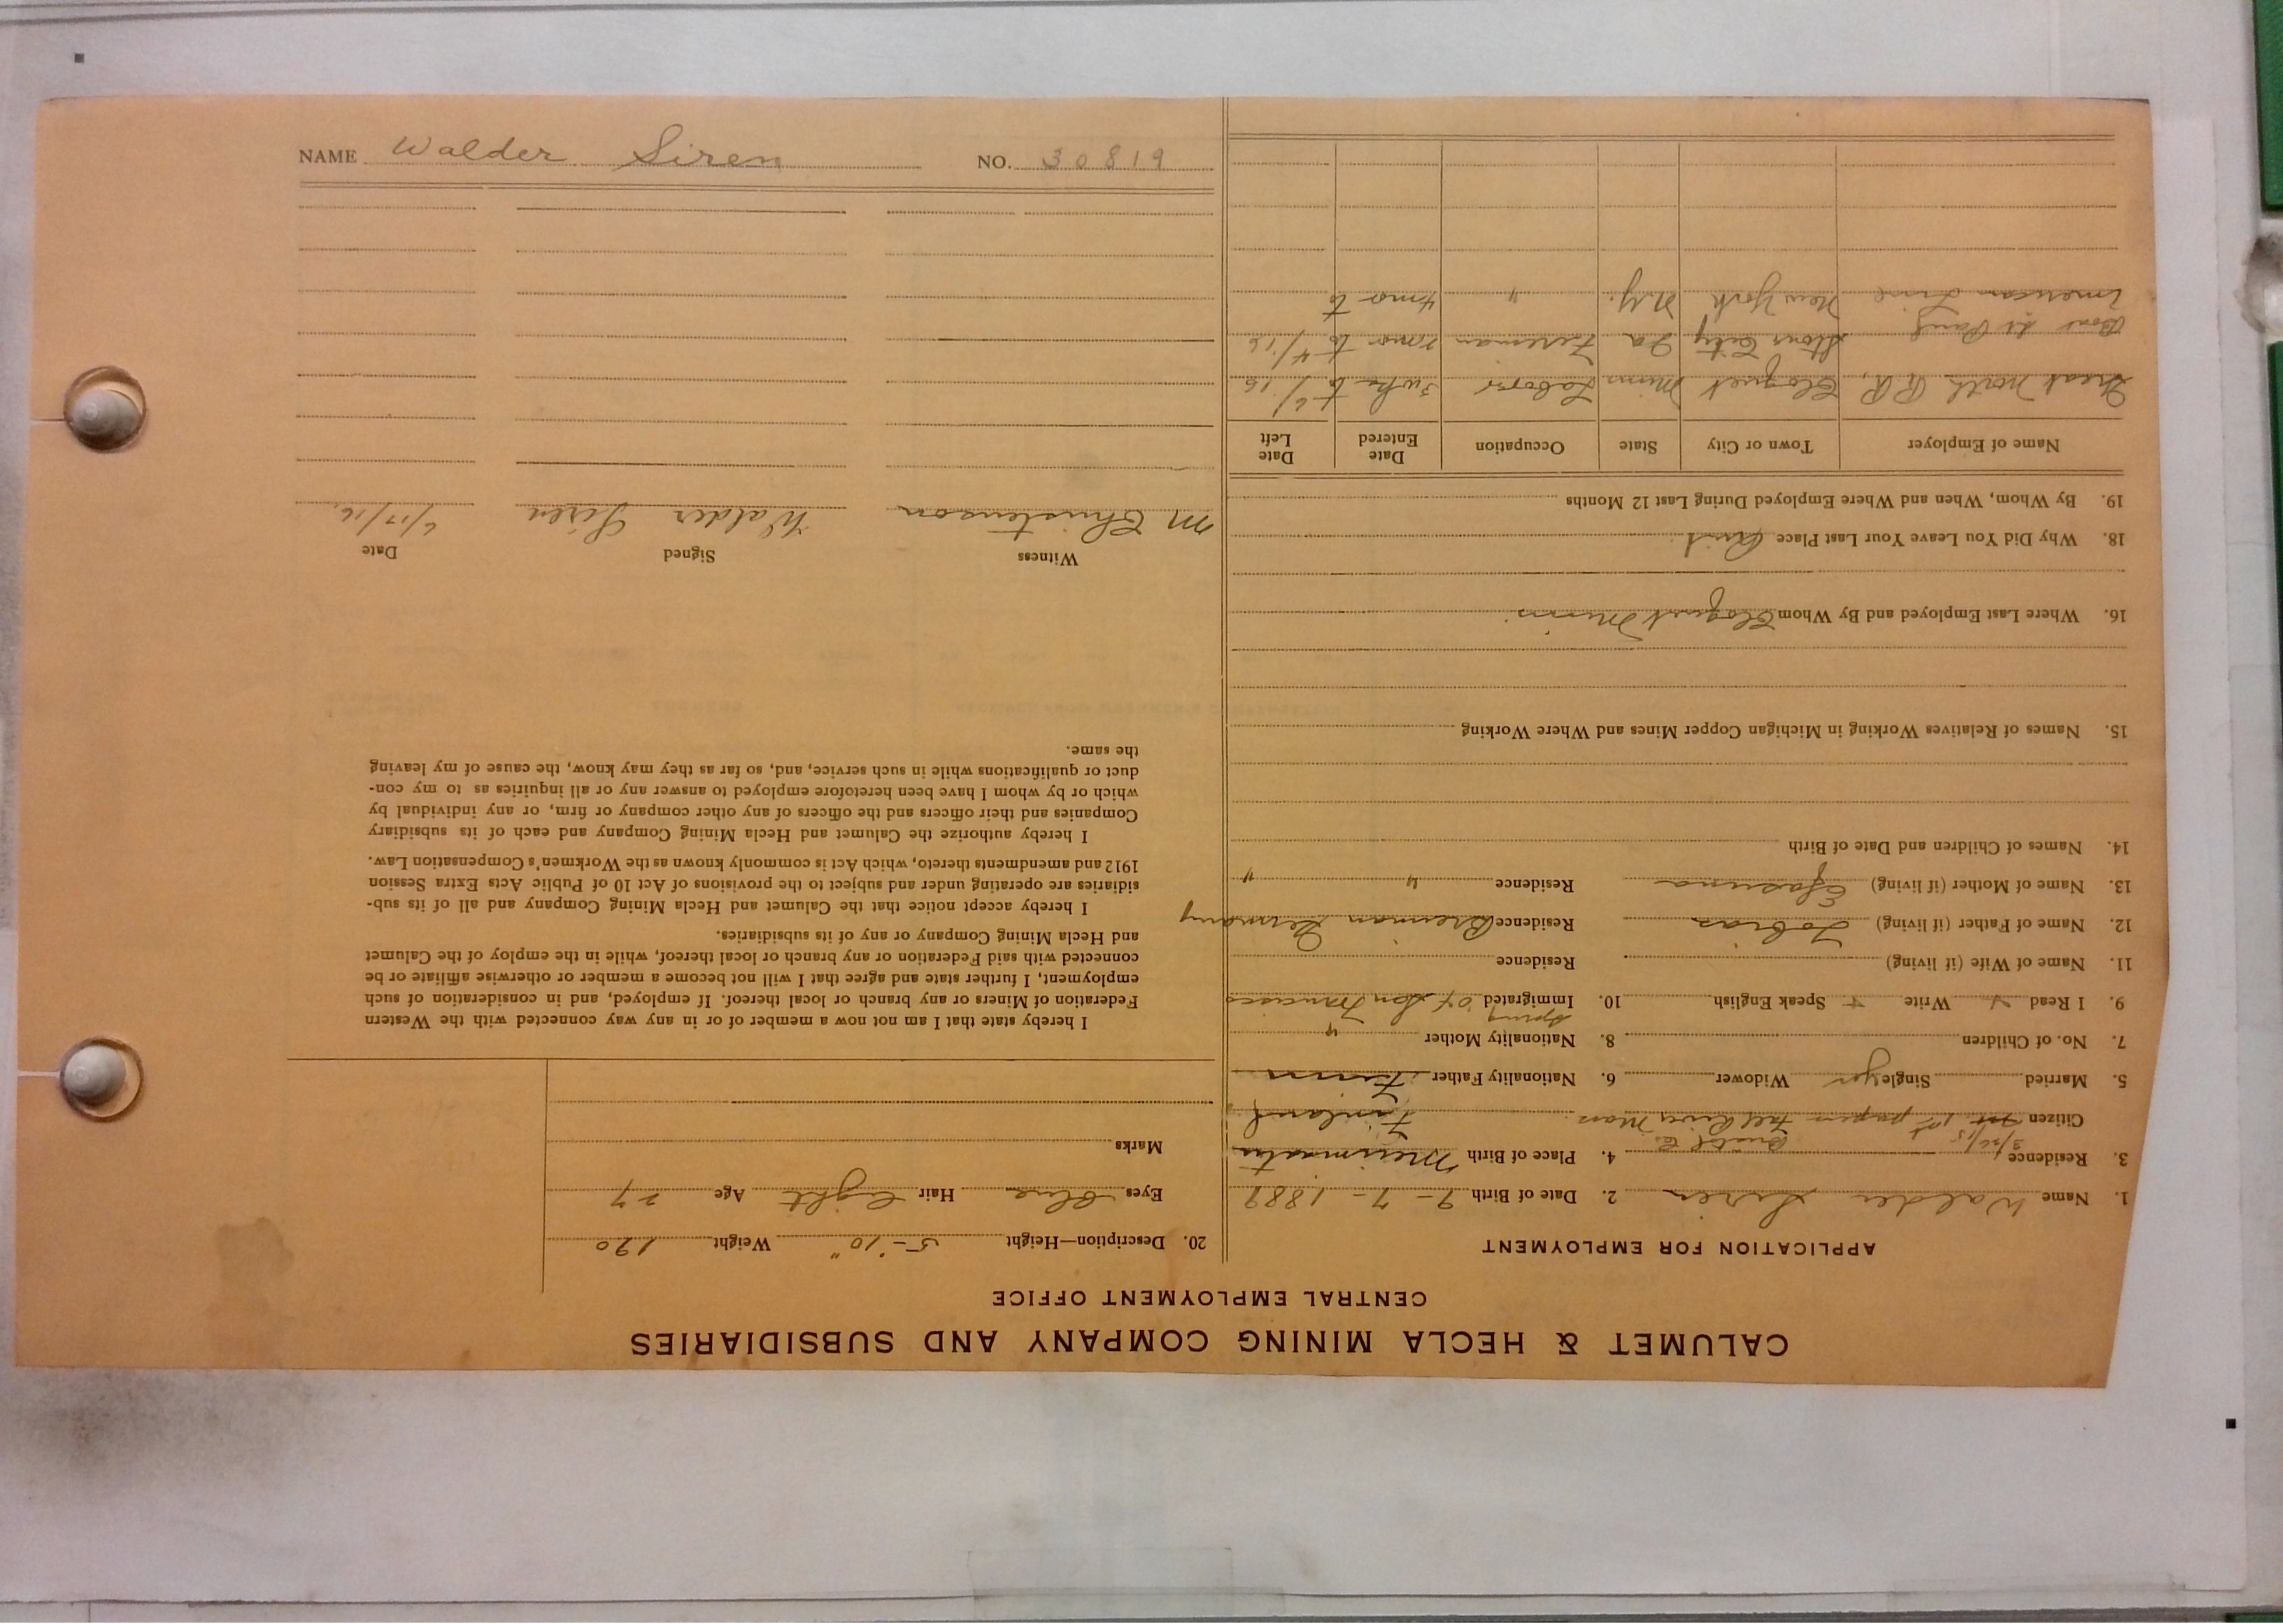 NAME Walder Siren NO. 30819
CALUMET & HECLA MINING COMPANY AND SUBSIDIARIES
CENTRAL EMPLOYMENT OFFICE
APPLICATION FOR EMPLOYMENT
1. Name Walder Siren 2. Date of Birth 9-7-1889
3. Residence 4. Place of Birth
3/26/15 Bristol Co.
Citizen 1st papers Fall River Mass. Finland
5. Married Single yes Widower 6. Nationality Father Finn
7. No. of Children 8. Nationality Mother "
Spring
9. I Read + Write + Speak English. 10. Immigrated San Francisco
11. Name of Wife (if living) Residence
12. Name of Father (if living) Tobias Residence Breman Germany
13. Name of Mother (if living) Residence " "
14. Names of Children and Date of Birth
15. Names of Relatives Working in Michigan Copper Mines and Where Working
16. Where Last Employed and By Whom Cloquet Minn.
18. Why Did You Leave Your Last Place
19. By Whom, When and Where Employed During Last 12 Months
Name of Employer Town or City State Occupation Date Entered Date Left
Great North R.R. Cloquet Minn Labors 3 wks to 6/16
Boat St Paul City Ia Fireman to 4/16
American Line New York N.Y. " 4 mos to
20. Description—Height 5-10" Weight 190
Eyes Blue Hair Light Age 27
Marks
I hereby state that I am not now a member of or in any way connected with the Western
Federation of Miners or any branch or local thereof. If employed, and in consideration of such
employment, I further state and agree that I will not become a member or otherwise affiliate or be
connected with said Federation or any branch or local thereof, while in the employ of the Calumet
and Hecla Mining Company or any of its subsidiaries.
I hereby accept notice that the Calumet and Hecla Mining Company and all of its sub-
sidiaries are operating under and subject to the provisions of Act 10 of Public Acts Extra Session
1912 and amendments thereto, which Act is commonly known as the Workmen's Compensation Law.
I hereby authorize the Calumet and Hecla Mining Company and each of its subsidiary
Companies and their officers and the officers of any other company or firm, or any individual by
which or by whom I have been heretofore employed to answer any or all inquiries as to my con-
duct or qualifications while in such service, and, so far as they may know, the cause of my leaving
the same.
Witness Signed Date
M Christenson Walder Siren 6/17/16